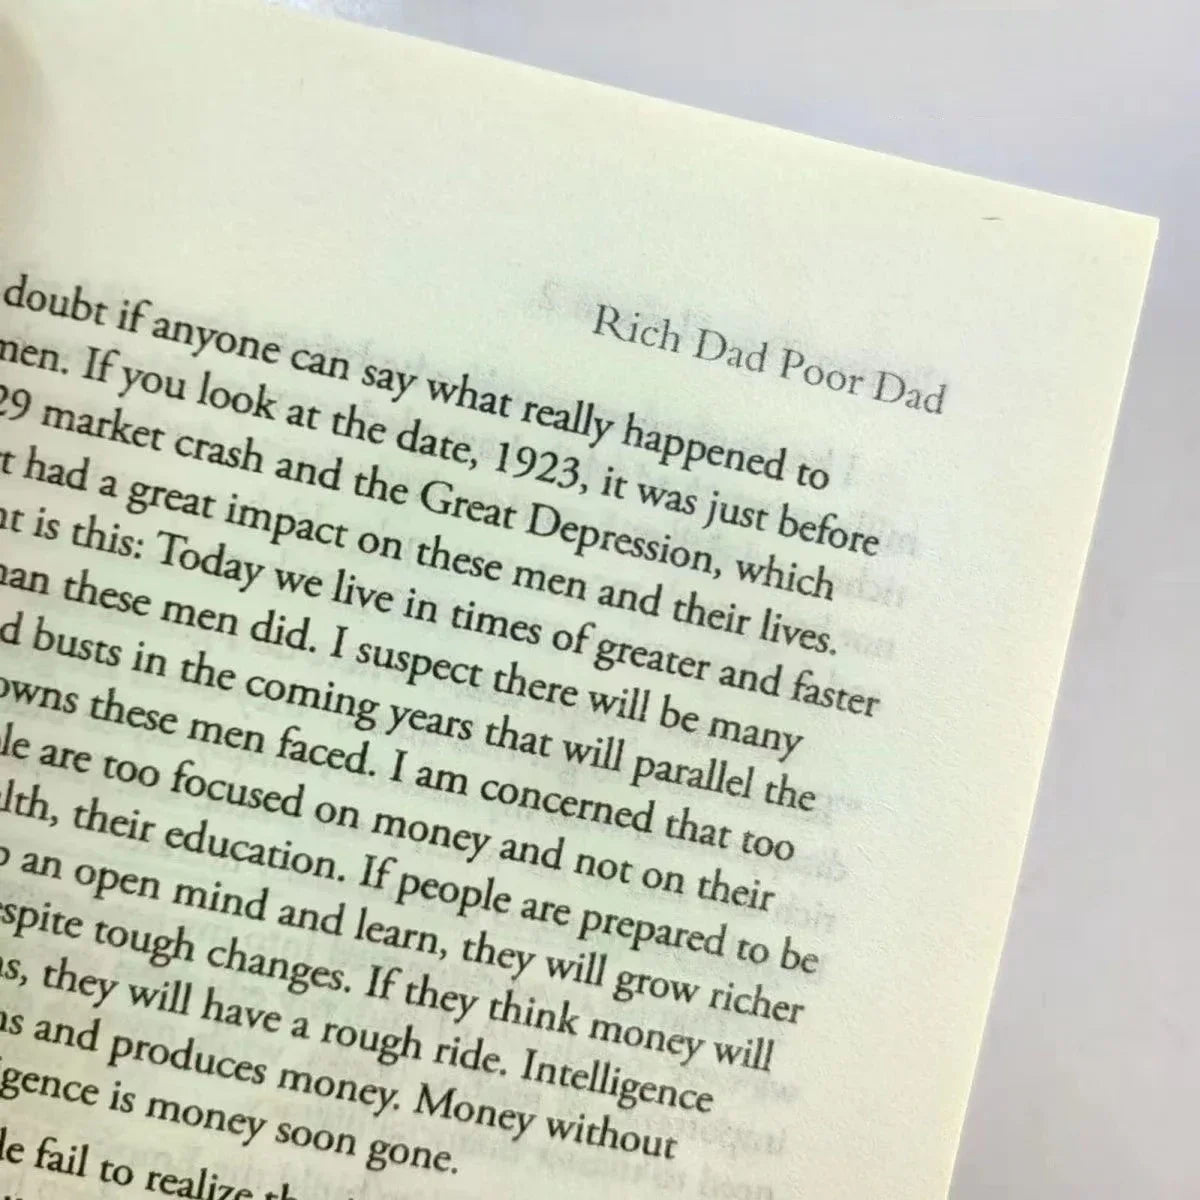 Rich Dad Poor Dad
doubt if anyone can say what really happened to
men. If you look at the date, 1923, it was just before
29 market crash and the Great Depression, which
t had a great impact on these men and their lives.
nt is this: Today we live in times of greater and faster
han these men did. I suspect there will be many
d busts in the coming years that will parallel the
owns these men faced. I am concerned that too
le are too focused on money and not on their
lth, their education. If people are prepared to be
p an open mind and learn, they will grow richer
espite tough changes. If they think money will
ns, they will have a rough ride. Intelligence
ns and produces money. Money without
igence is money soon gone.
le fail to realize